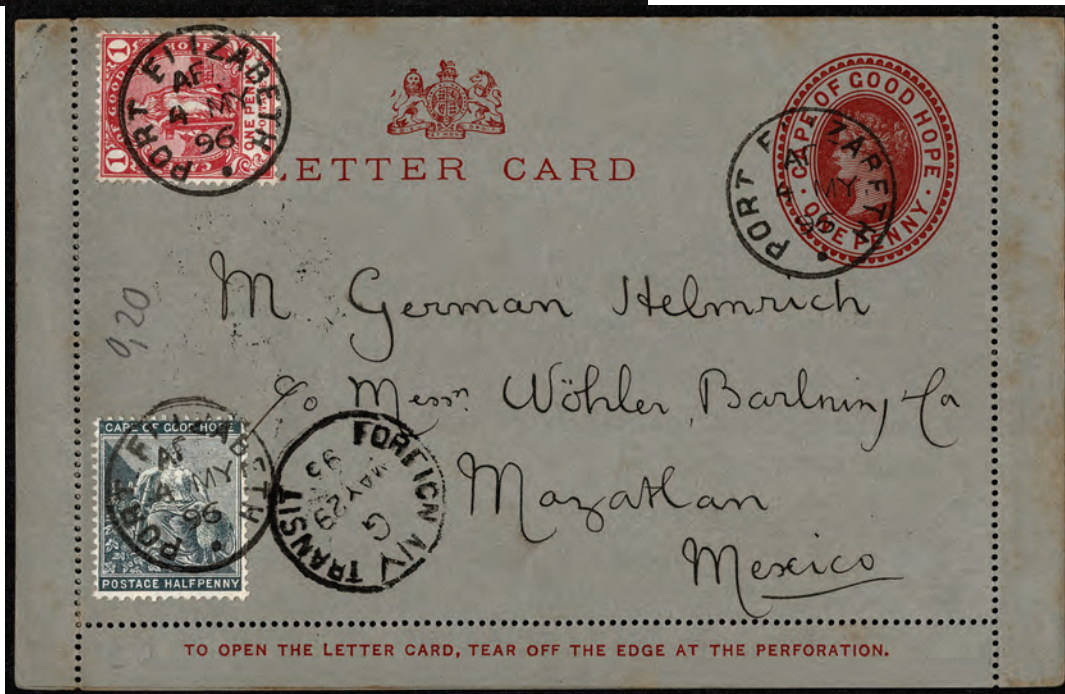 1 OF GOOD HOPE 1
ONE PENNY
PORT ELIZABETH
AF
4 MY
96
LETTER CARD
CAPE OF GOOD HOPE
ONE PENNY
PORT ELIZABETH
MY
96
M German Helmrich
0,20
c/o Messrs. Wöhler, Bartning
Mazatlan
Mexico
CAPE OF GOOD HOPE
POSTAGE HALFPENNY
PORT ELIZABETH
AF
4 MY
96
FOREIGN NY TRANSIT
G
MAY 29
TO OPEN THE LETTER CARD, TEAR OFF THE EDGE AT THE PERFORATION.